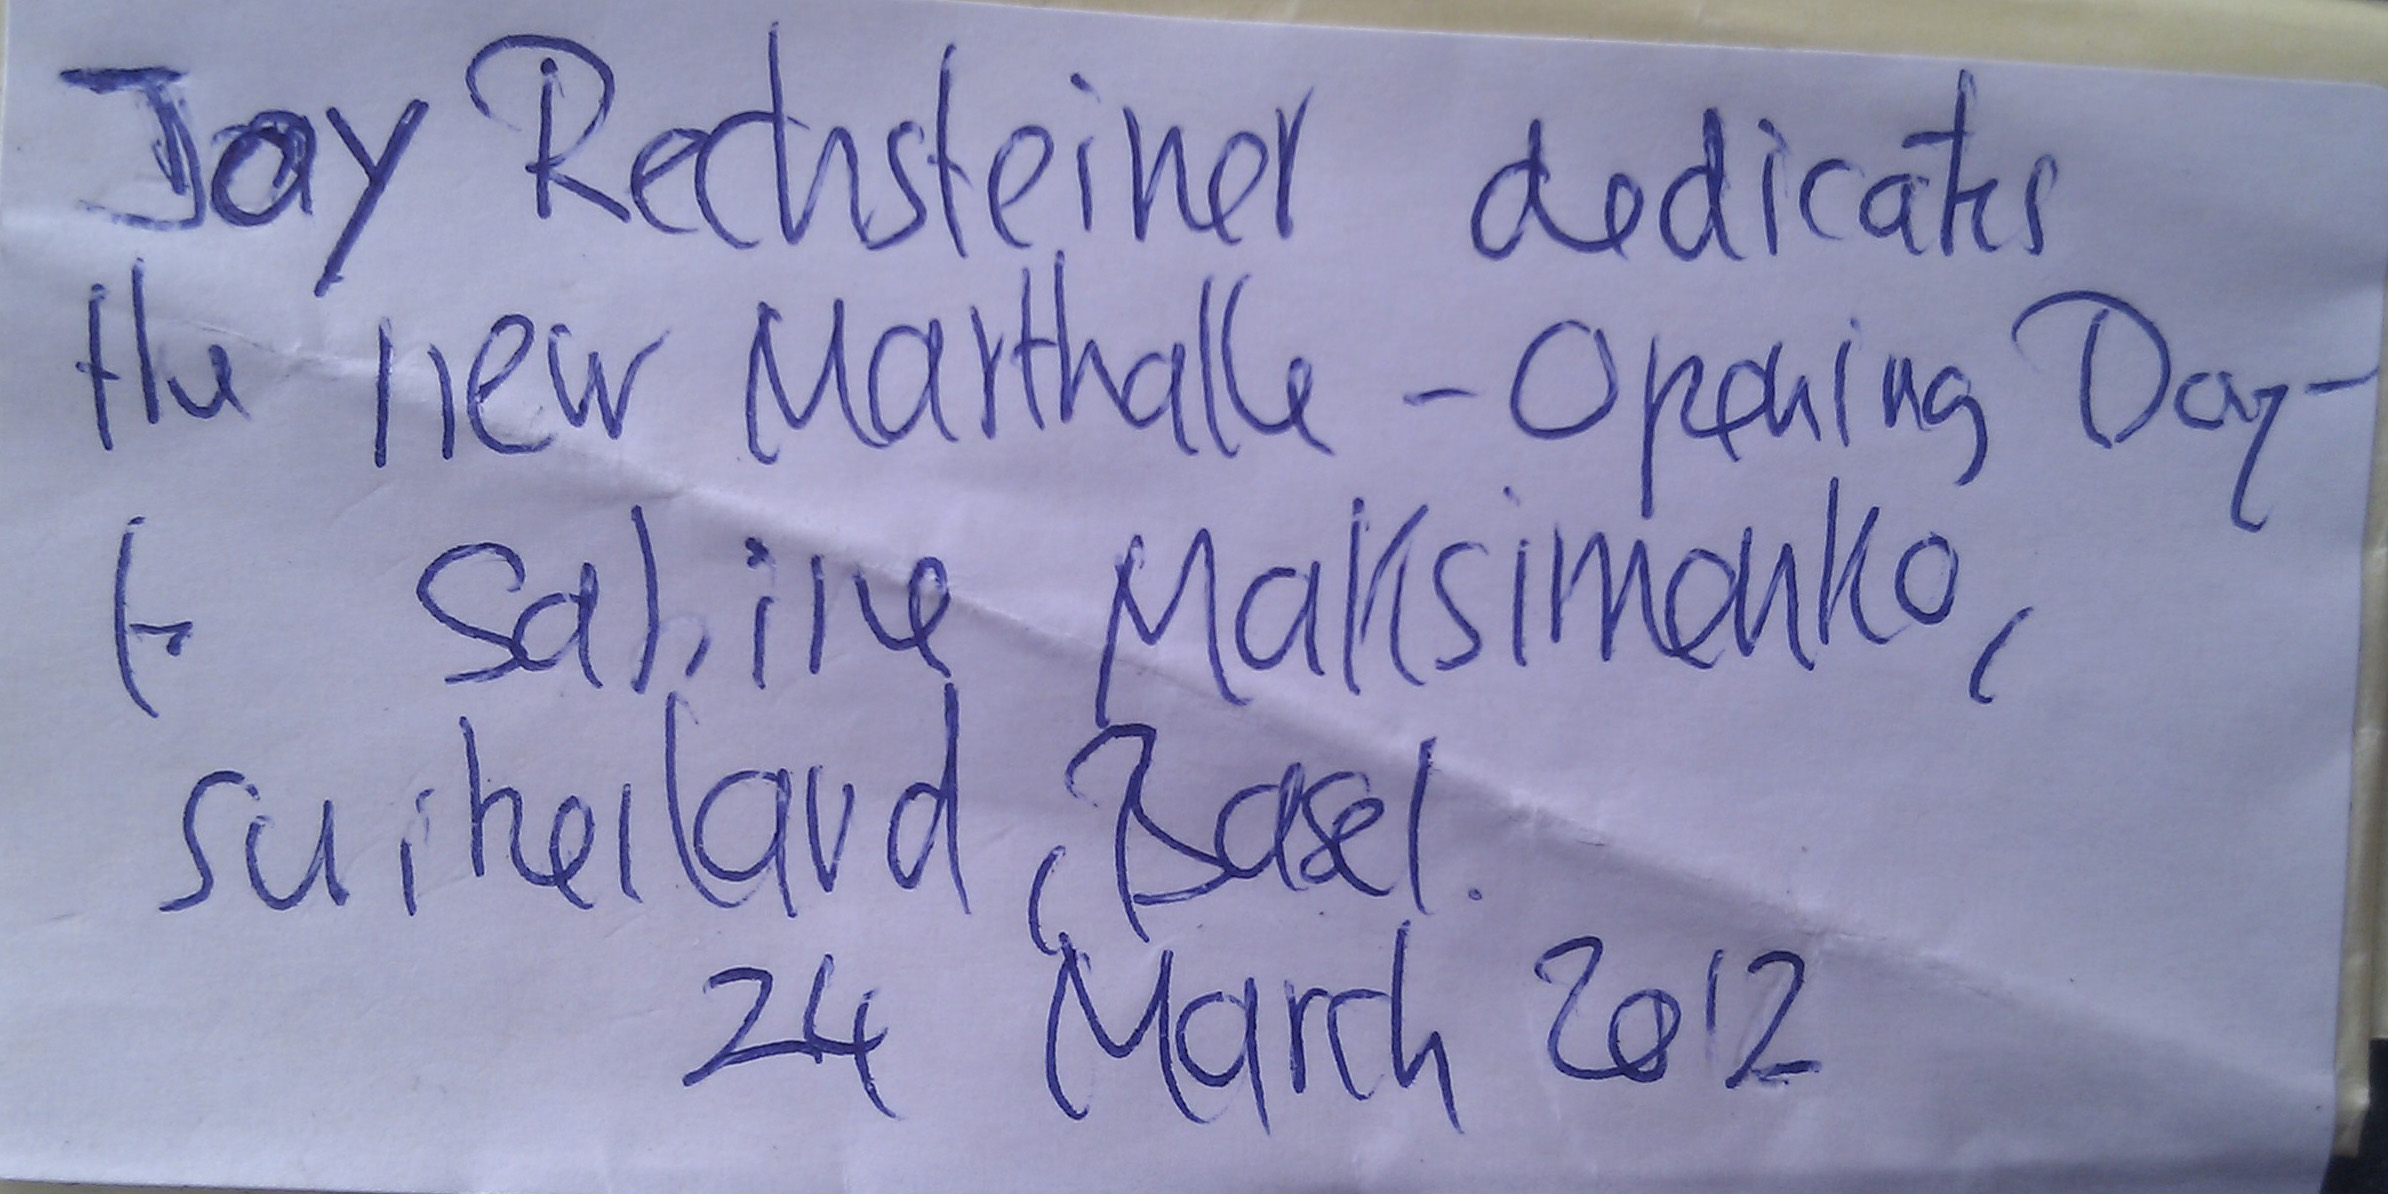 Jay Rechsteiner dedicates
the new Marthalle - Opening Day -
to Sabine Maksimenko,
Switzerland, Basel.
24 March 2012